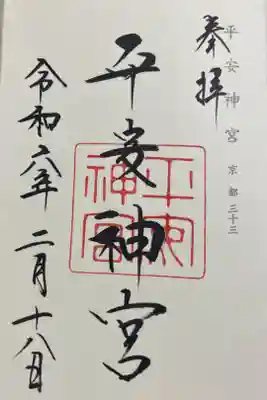 奉拝
平安神宮 京都三十三
平安神宮
平安神宮
令和六年二月十八日